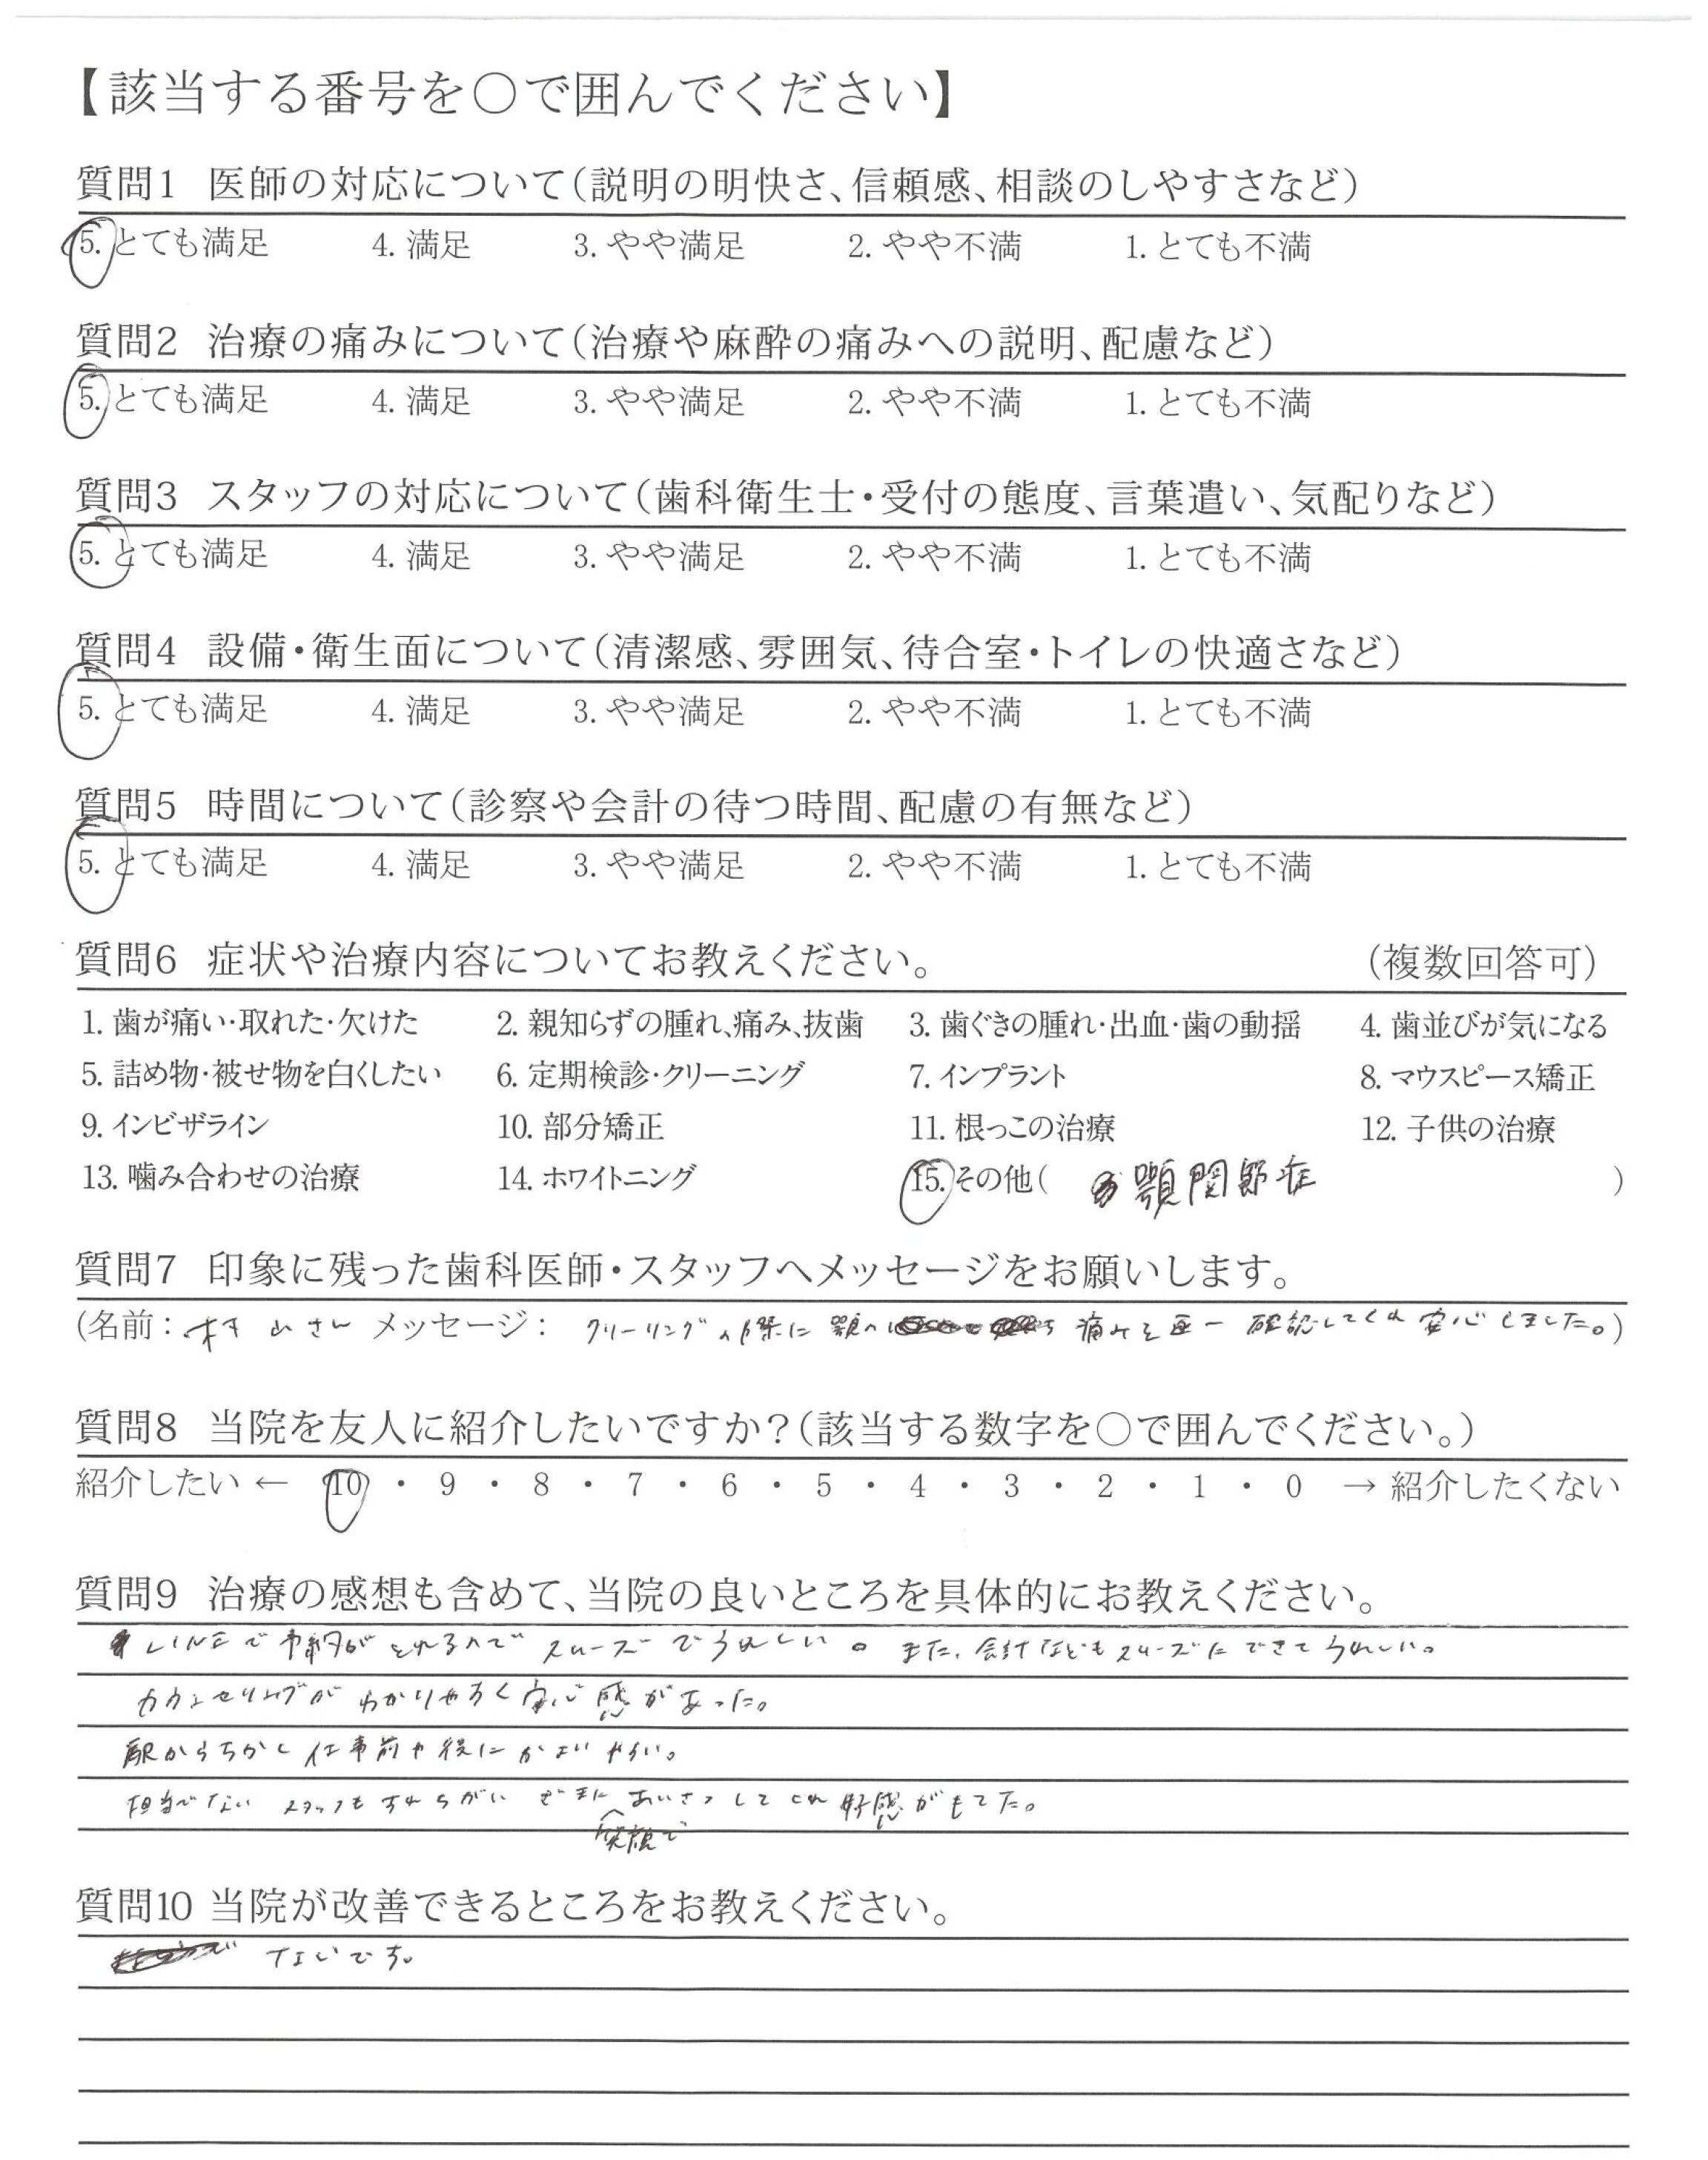 【該当する番号を○で囲んでください】
質問1 医師の対応について（説明の明快さ、信頼感、相談のしやすさなど）
5. とても満足 4. 満足 3. やや満足 2. やや不満 1. とても不満
質問2 治療の痛みについて（治療や麻酔の痛みへの説明、配慮など）
5. とても満足 4. 満足 3. やや満足 2. やや不満 1. とても不満
質問3 スタッフの対応について（歯科衛生士・受付の態度、言葉遣い、気配りなど）
5. とても満足 4. 満足 3. やや満足 2. やや不満 1. とても不満
質問4 設備・衛生面について（清潔感、雰囲気、待合室・トイレの快適さなど）
5. とても満足 4. 満足 3. やや満足 2. やや不満 1. とても不満
質問5 時間について（診察や会計の待つ時間、配慮の有無など）
5. とても満足 4. 満足 3. やや満足 2. やや不満 1. とても不満
質問6 症状や治療内容についてお教えください。 （複数回答可）
1. 歯が痛い・取れた・欠けた 2. 親知らずの腫れ、痛み、抜歯 3. 歯ぐきの腫れ・出血・歯の動揺 4. 歯並びが気になる
5. 詰め物・被せ物を白くしたい 6. 定期検診・クリーニング 7. インプラント 8. マウスピース矯正
9. インビザライン 10. 部分矯正 11. 根っこの治療 12. 子供の治療
13. 噛み合わせの治療 14. ホワイトニング 15. その他( 顎関節症 )
質問7 印象に残った歯科医師・スタッフへメッセージをお願いします。
(名前： 山さん メッセージ： クリーリングの際に 顎の 痛みを 確認してくれ 安心しました。)
質問8 当院を友人に紹介したいですか？（該当する数字を○で囲んでください。）
紹介したい ← 10 ・ 9 ・ 8 ・ 7 ・ 6 ・ 5 ・ 4 ・ 3 ・ 2 ・ 1 ・ 0 → 紹介したくない
質問9 治療の感想も含めて、当院の良いところを具体的にお教えください。
LINEで予約がとれるので スムーズでうれしい。また、会計などもスムーズにできてうれしい。
カウンセリングが わかりやすく安心感があった。
駅からちかく 仕事前や後に かよいやすい。
担当でない スタッフも すれちがい ざまに 笑顔で あいさつしてくれ 好感がもてた。
質問10 当院が改善できるところをお教えください。
ないです。